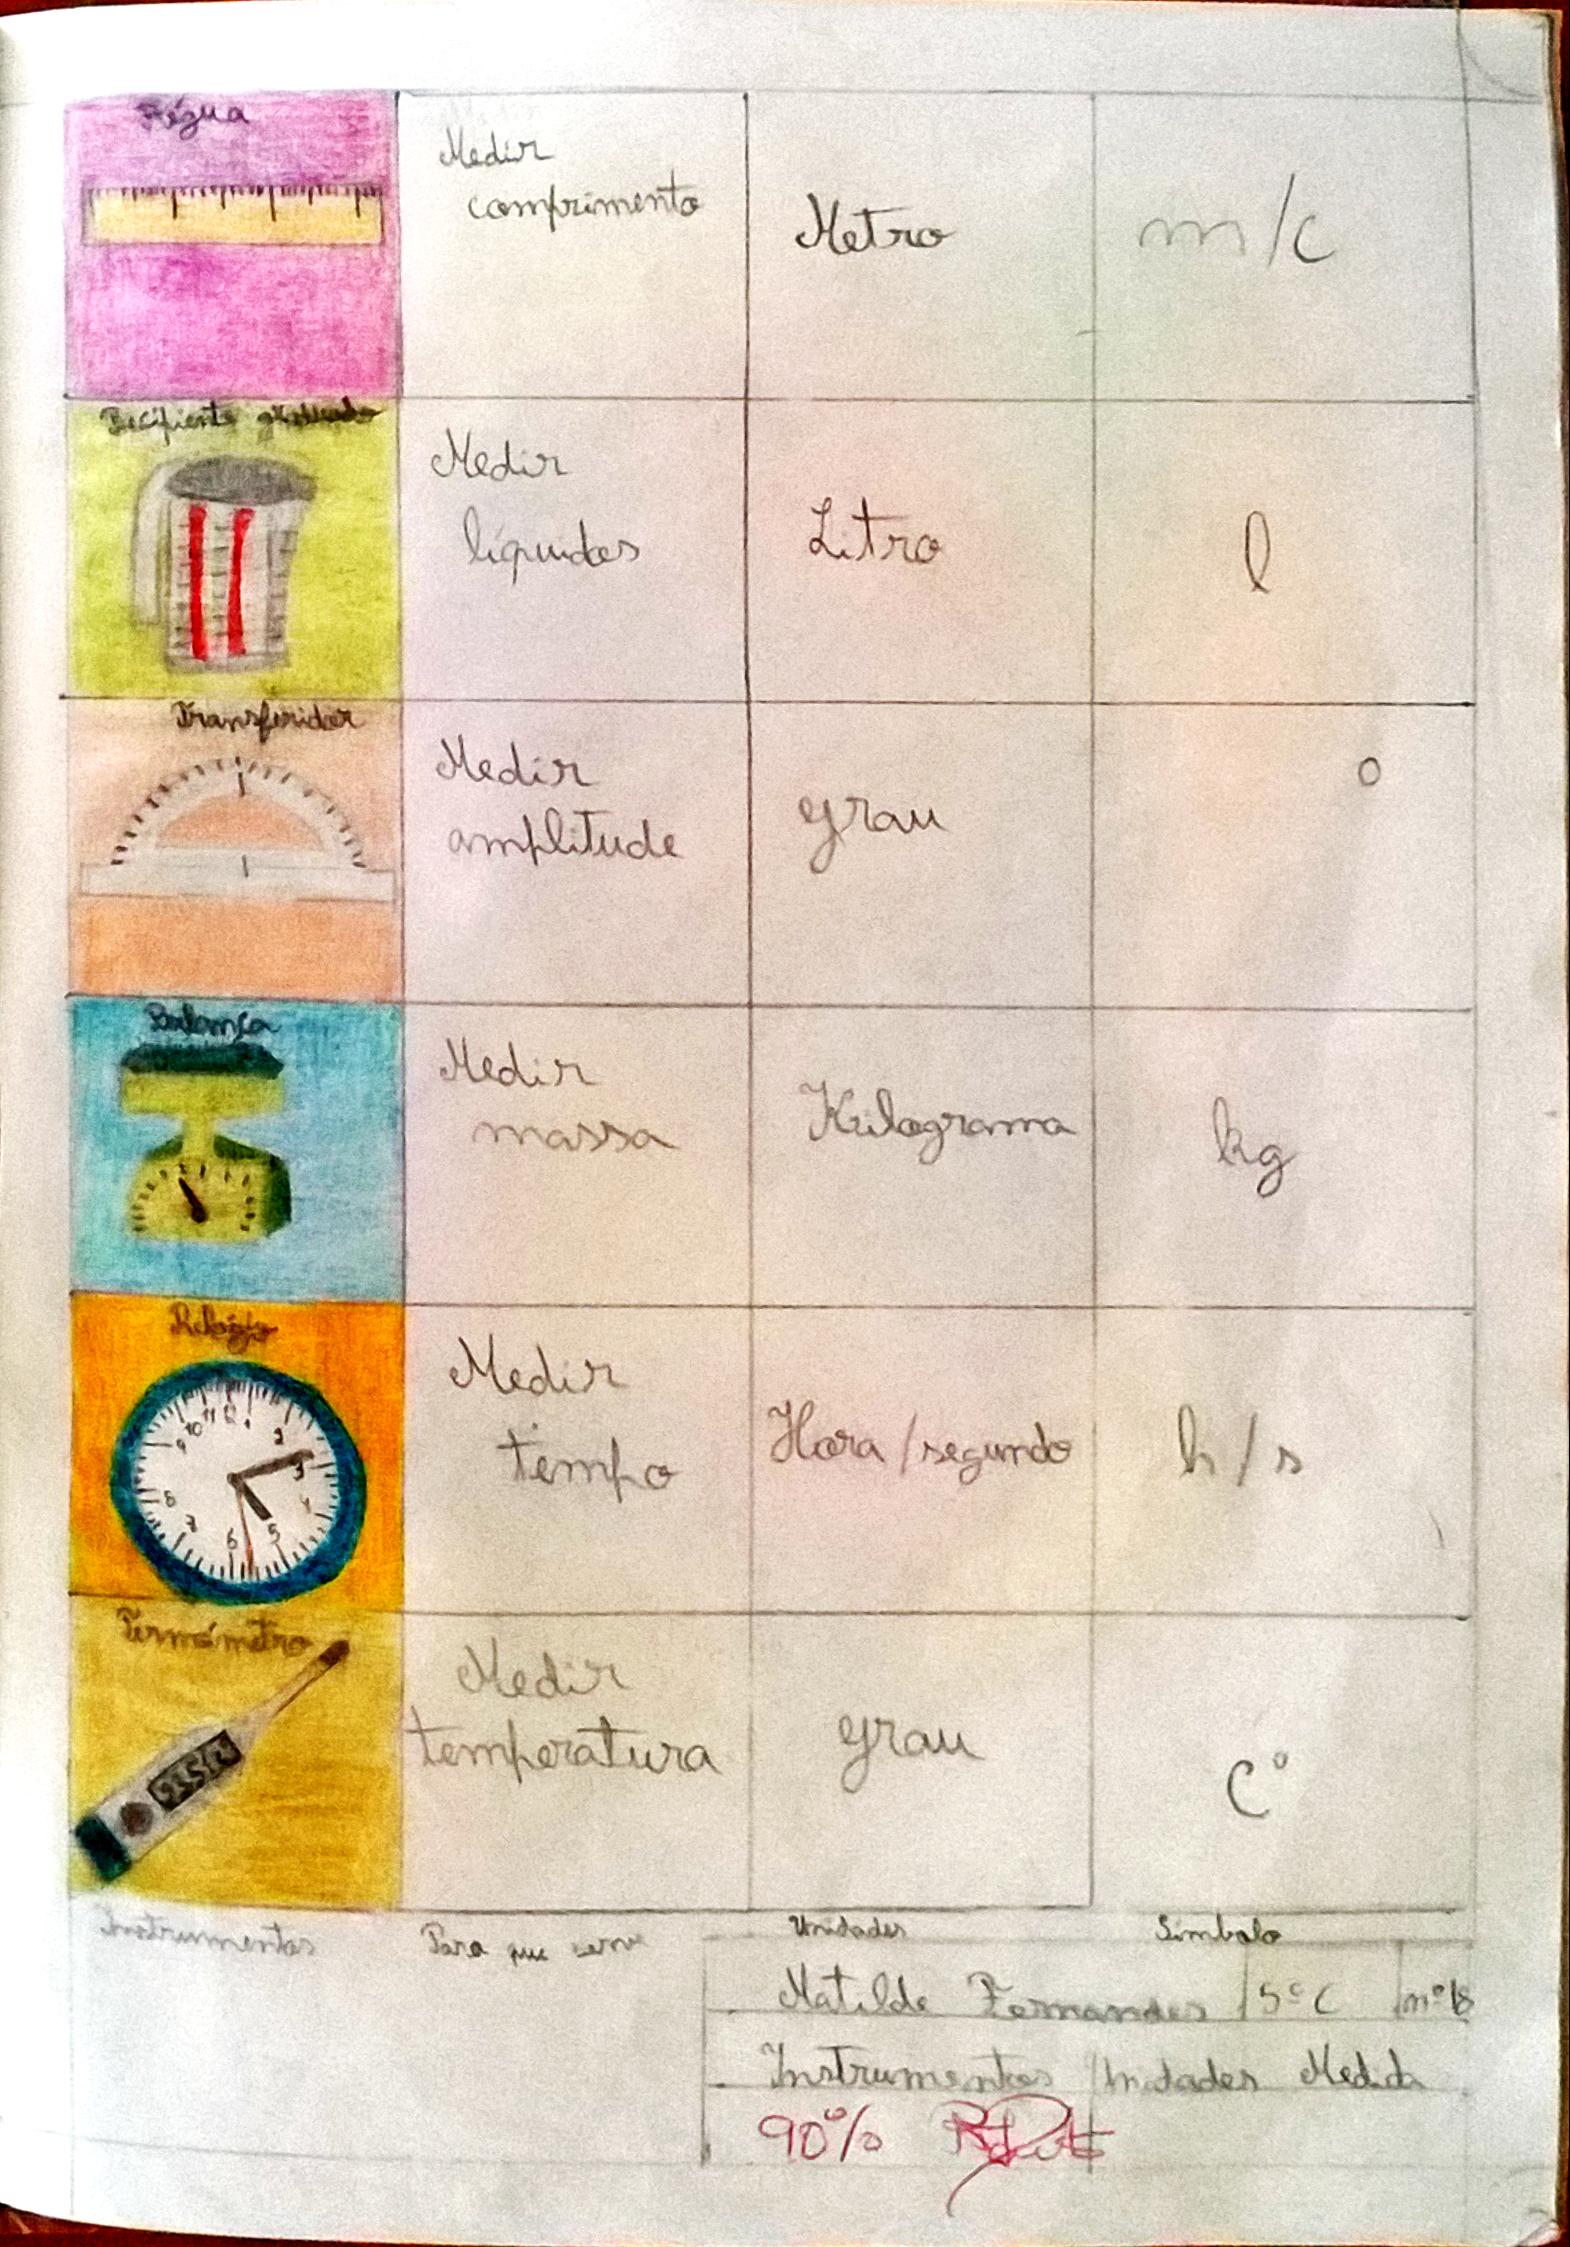 Régua
Medir
comprimento
Metro
m/c
Recipiente graduado
Medir
líquidos
Litro
l
Transferidor
Medir
amplitude
grau
°
Balança
Medir
massa
Kilograma
kg
Relógio
10 11 12 1 2 3 4 5 6 7 8 9
Medir
tempo
Hora/segundo
h/s
Termómetro
Medir
temperatura
grau
C°
Instrumentos Para que serve Unidades Símbolo
Matilde Fernandes 5º C nº 18
Instrumentos/Unidades Medida
90%